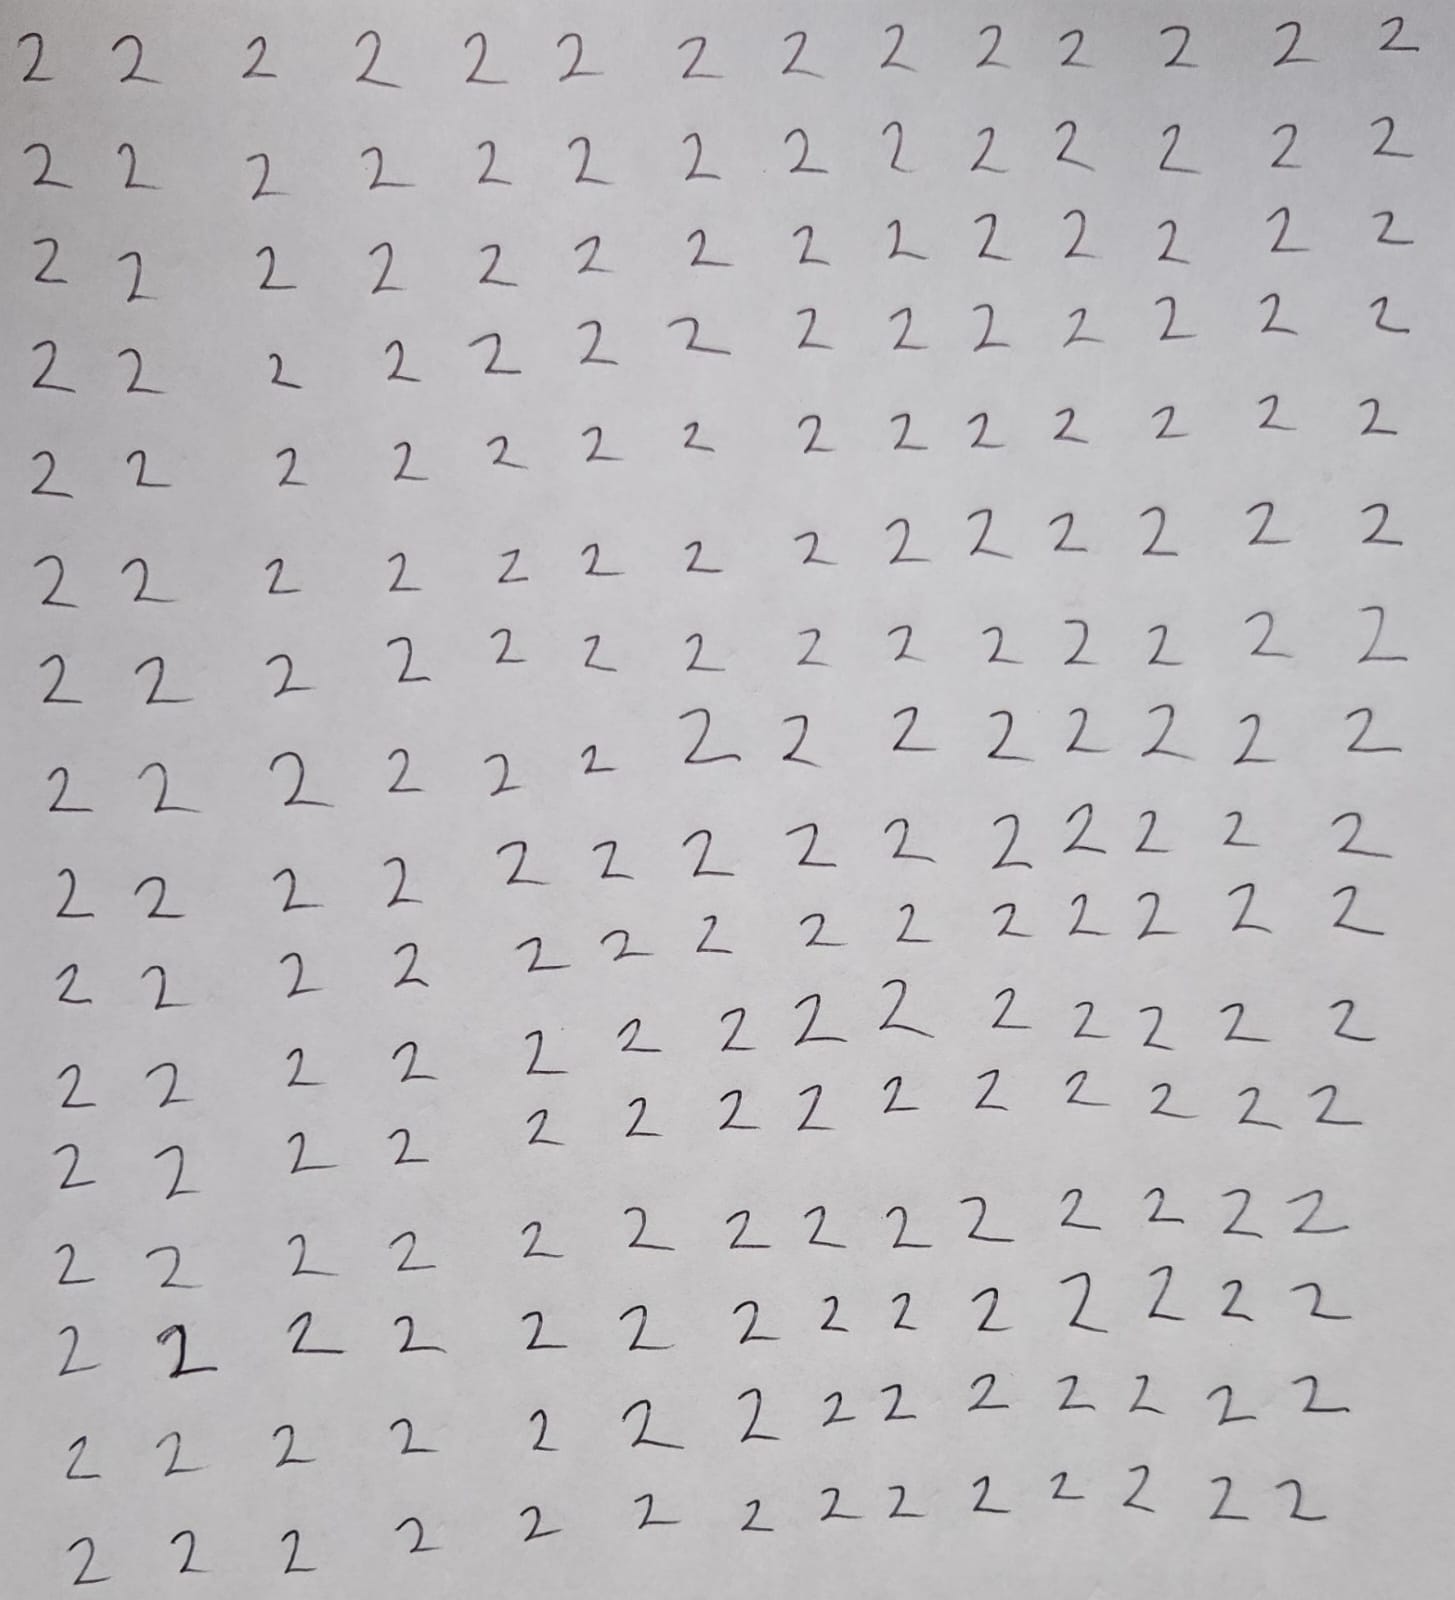 2 2 2 2 2 2 2 2 2 2 2 2 2 2
2 2 2 2 2 2 2 2 2 2 2 2 2 2
2 2 2 2 2 2 2 2 2 2 2 2 2 2
2 2 2 2 2 2 2 2 2 2 2 2 2 2
2 2 2 2 2 2 2 2 2 2 2 2 2 2
2 2 2 2 2 2 2 2 2 2 2 2 2 2
2 2 2 2 2 2 2 2 2 2 2 2 2 2
2 2 2 2 2 2 2 2 2 2 2 2 2 2
2 2 2 2 2 2 2 2 2 2 2 2 2 2
2 2 2 2 2 2 2 2 2 2 2 2 2 2
2 2 2 2 2 2 2 2 2 2 2 2 2 2
2 2 2 2 2 2 2 2 2 2 2 2 2 2
2 2 2 2 2 2 2 2 2 2 2 2 2 2
2 2 2 2 2 2 2 2 2 2 2 2 2 2
2 2 2 2 2 2 2 2 2 2 2 2 2 2
2 2 2 2 2 2 2 2 2 2 2 2 2 2